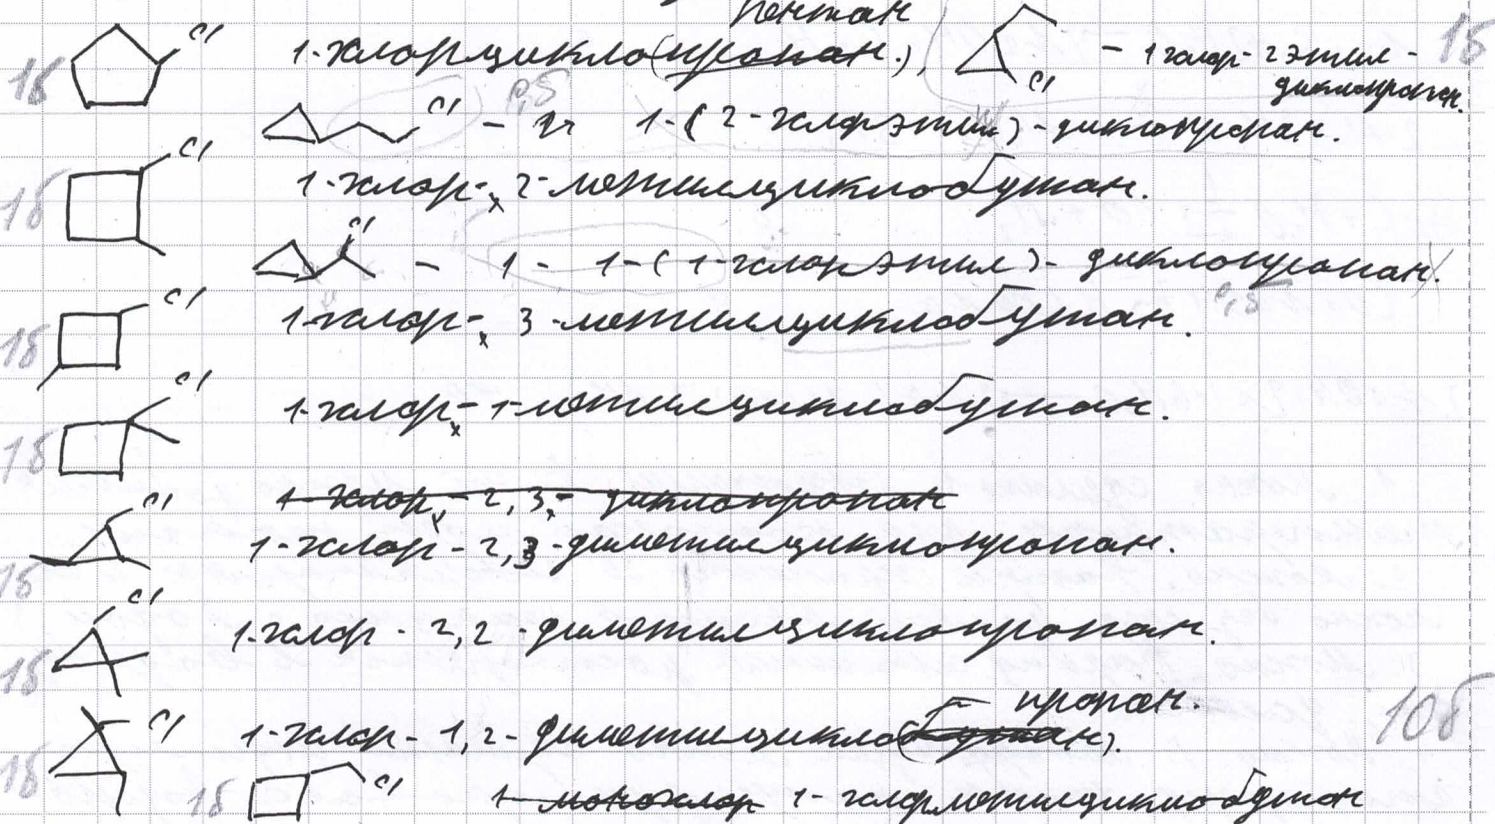 пентан
1б Cl 1-хлорцикло(пропан.), Cl - 1 хлор-2 этил- 1б
циклопропан.
Cl - 1-(2-хлорэтил)-циклопропан. 0,5
1б Cl 1-хлор-2-метилциклобутан.
Cl - 1- 1-(1-хлорэтил)-циклопропан. 0,5
1б Cl 1-хлор-3-метилциклобутан.
1б Cl 1-хлор-1-метилциклобутан.
1-хлор-2,3-циклопропан
1б Cl 1-хлор-2,3-диметилциклопропан.
1б Cl 1-хлор-2,2-диметилциклопропан.
пропан. 10б
1б Cl 1-хлор-1,2-диметилцикло(бутан).
1б Cl 1-монохлор 1-хлорметилциклобутан